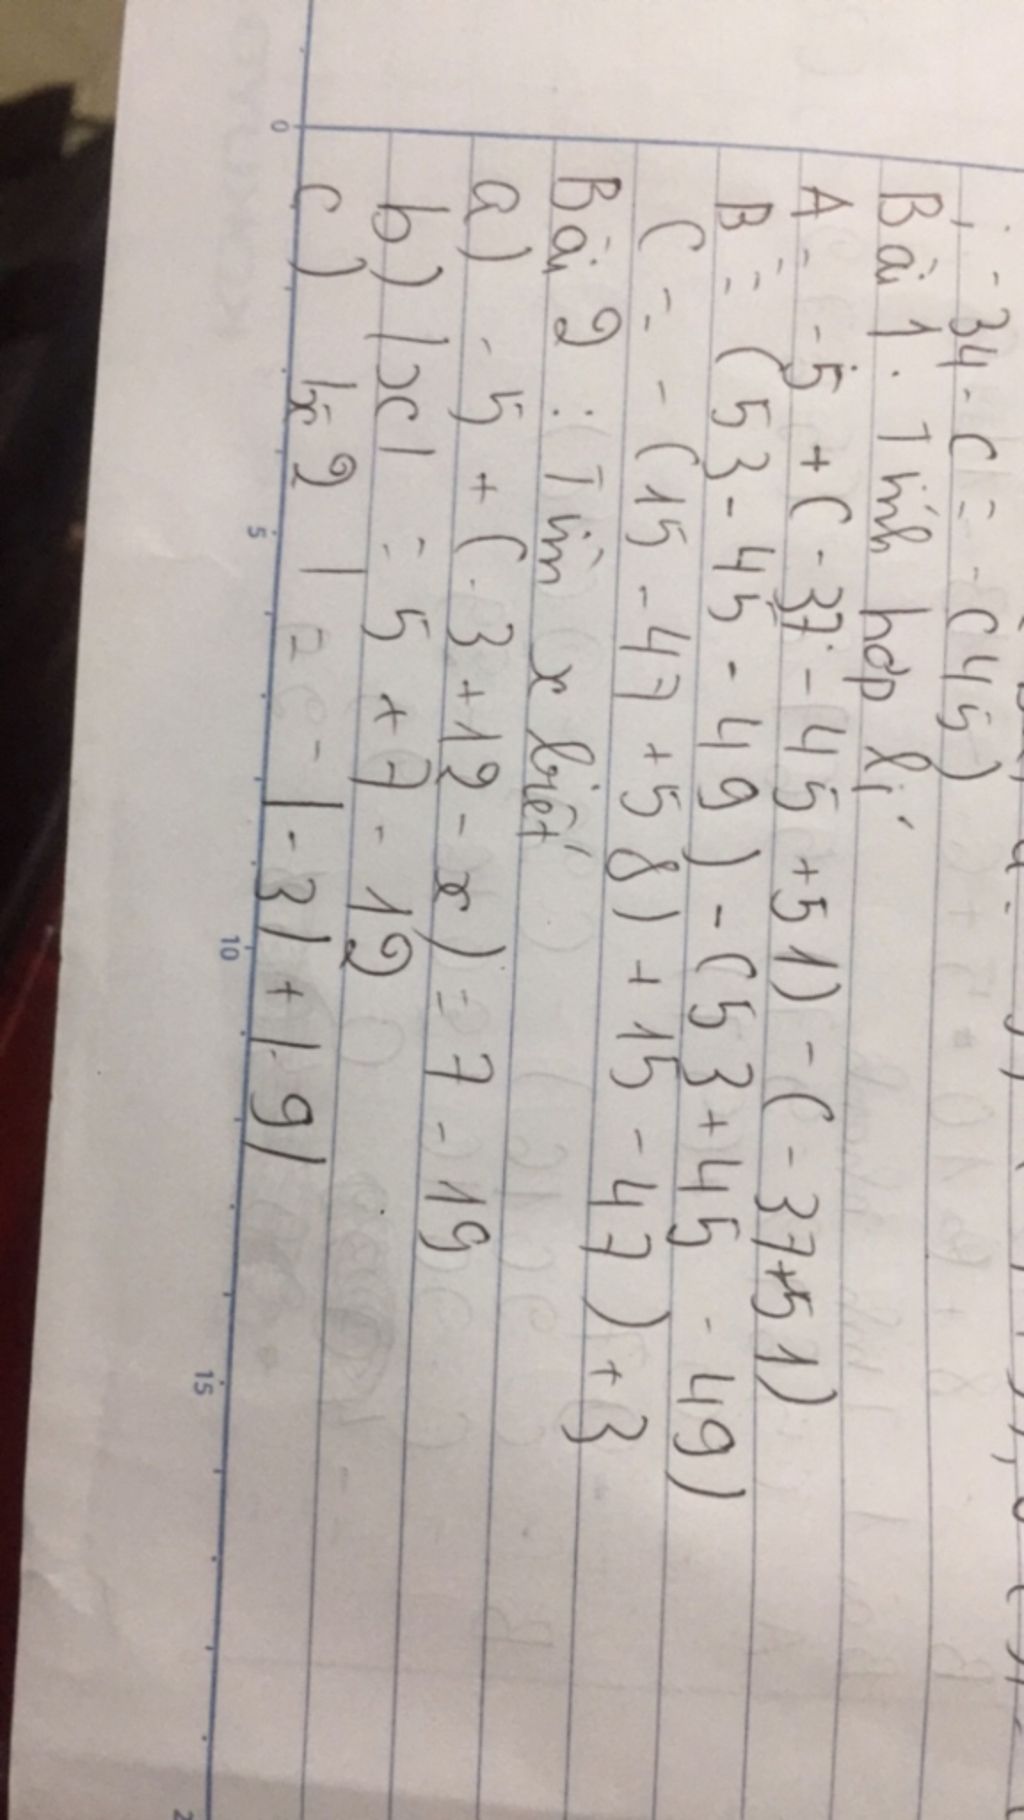 -34-(=-(45)
Bài 1. Tính hợp lí
A = -5 + (-37 - 45 + 51) - (-37+51)
B = (53 - 45 - 49) - (53 + 45 - 49)
C = - (15 - 47 + 58) + 15 - 47) + 3
Bài 2 : Tìm x biết
a) -5 + (-3 + 12 - x) = 7 - 19
b) |x| = 5 + 7 - 12
c) 2 | = - |-3| + |-9|
0 5 10 15